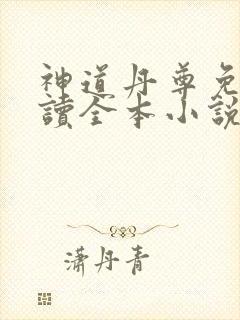 神道丹尊免
讀全本小說
瀟丹青